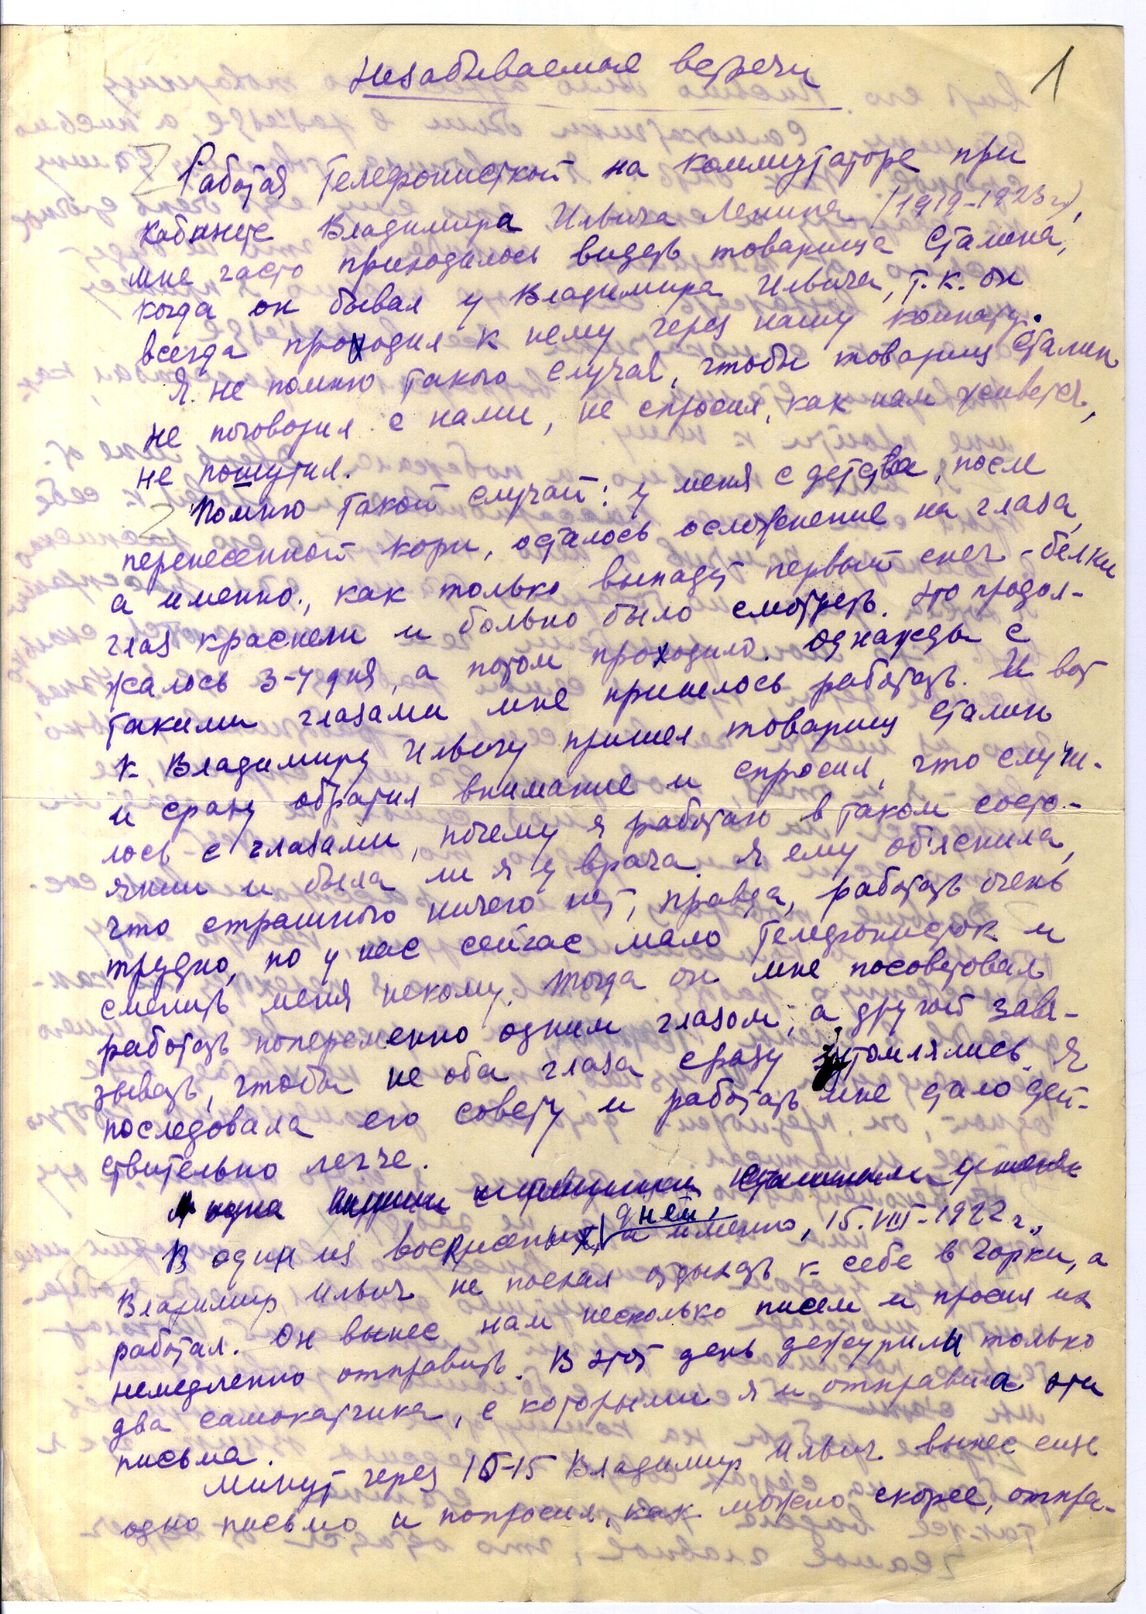 Незабываемая встреча
1
Работая телефонисткой на коммутаторе при
кабинете Владимира Ильича Ленина (1919-1923гг),
мне часто приходилось видеть товарища Сталина,
когда он бывал у Владимира Ильича, т.к. он
всегда проходил к нему через нашу комнату.
Я не помню такого случая, чтобы товарищ Сталин
не поговорил с нами, не спросил, как нам живется,
не пошутил.
Помню такой случай: у меня с детства, после
перенесенной кори, осталось осложнение на глаза,
а именно, как только выпадет первый снег - белки
глаз краснели и больно было смотреть. Это продол-
жалось 3-4 дня, а потом проходило. Однажды с
такими глазами мне пришлось работать. И вот
к Владимиру Ильичу пришел товарищ Сталин
и сразу обратил внимание и спросил, что случи-
лось с глазами, почему я работаю в таком состо-
янии и была ли я у врача. Я ему об'яснила,
что страшного ничего нет, правда, работать очень
трудно, но у нас сейчас мало телефонисток и
сменить меня некому. Тогда он мне посоветовал
работать попеременно одним глазом, а другой завя-
зывать, чтобы не оба глаза сразу утомлялись. Я
последовала его совету и работать мне стало дей-
ствительно легче.
В один из воскресных дней, а именно, 15.VIII-1922г.,
Владимир Ильич не поехал отдыхать к себе в Горки, а
работал. Он вынес нам несколько писем и просил их
немедленно отправить. В этот день дежурили только
два самокатчика, с которыми я и отправила эти
письма.
Минут через 10-15 Владимир Ильич вынес еще
одно письмо и попросил, как можно скорее, отпра-